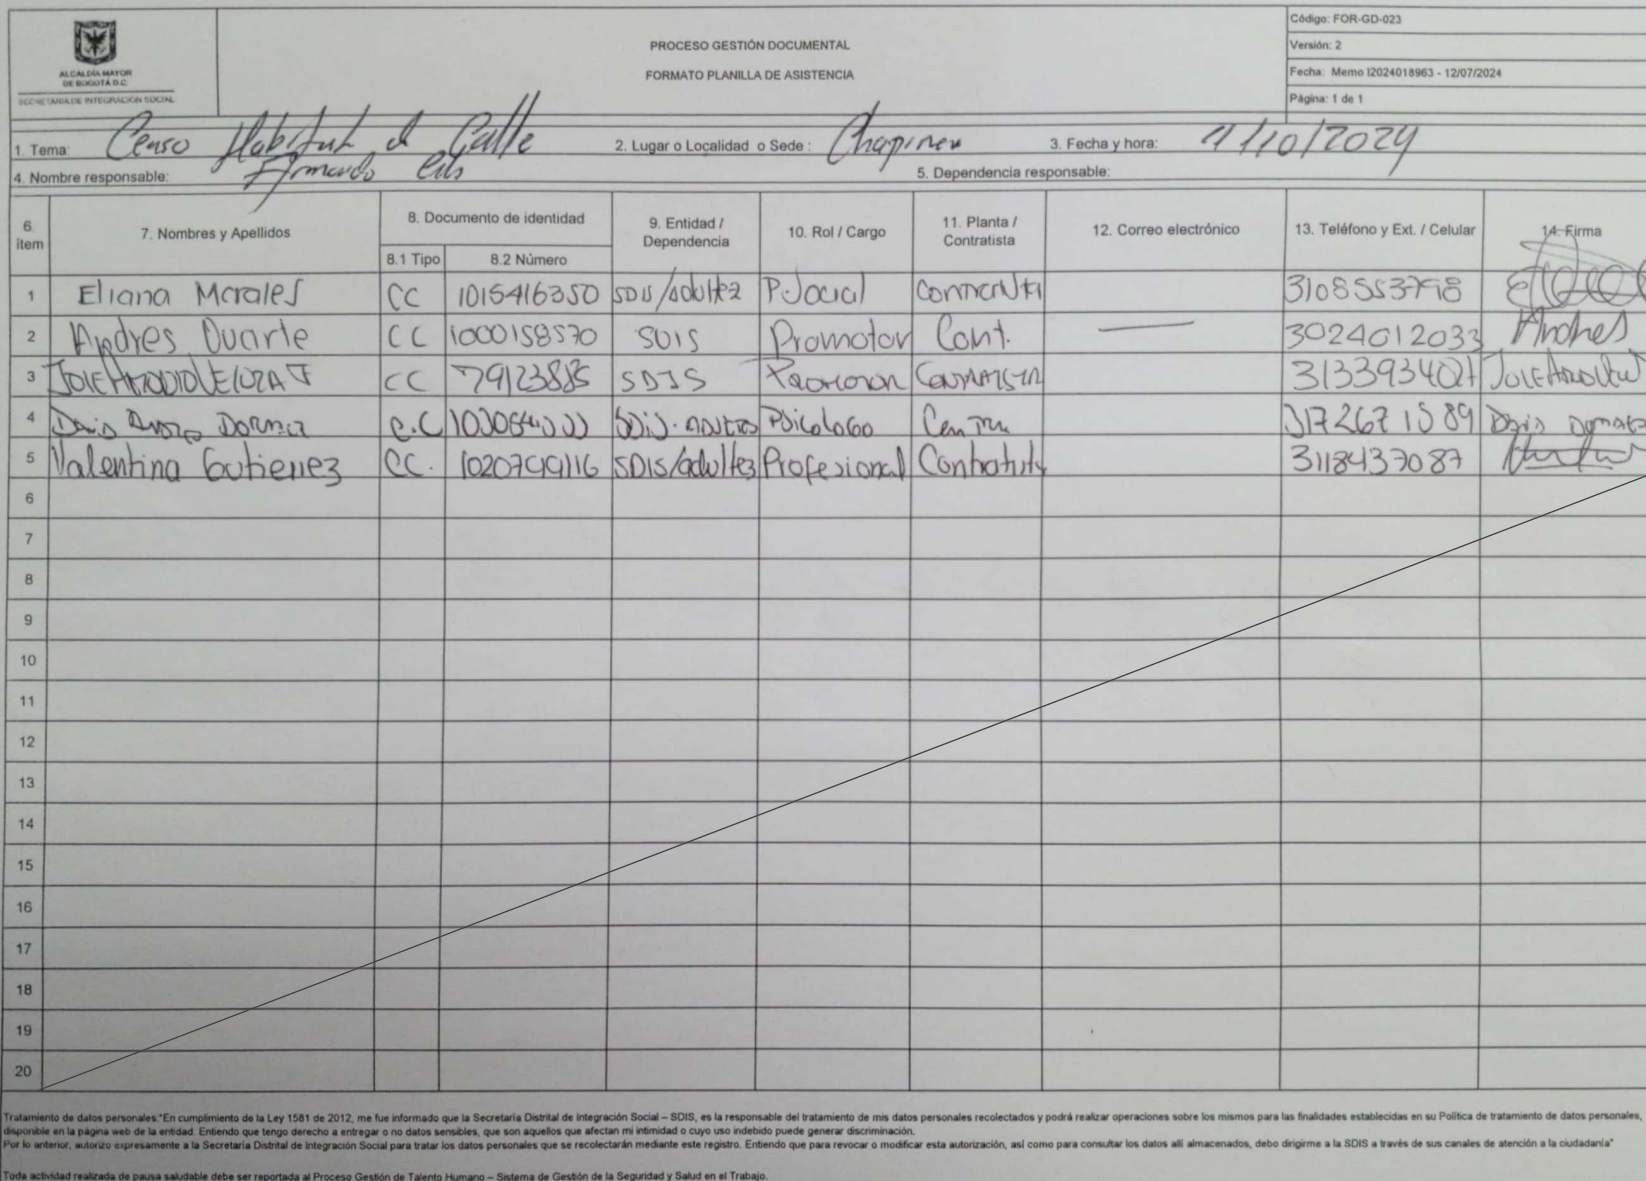 ALCALDÍA MAYOR
DE BOGOTÁ D.C.
SECRETARÍA DE INTEGRACIÓN SOCIAL
PROCESO GESTIÓN DOCUMENTAL
FORMATO PLANILLA DE ASISTENCIA
Código: FOR-GD-023
Versión: 2
Fecha: Memo I2024018963 - 12/07/2024
Página: 1 de 1
1. Tema: Censo Calle 2. Lugar o Localidad o Sede : Chapinero 3. Fecha y hora: 11/10/2024
4. Nombre responsable: 5. Dependencia responsable:
6. ítem 7. Nombres y Apellidos 8. Documento de identidad 8.1 Tipo 8.2 Número 9. Entidad / Dependencia 10. Rol / Cargo 11. Planta / Contratista 12. Correo electrónico 13. Teléfono y Ext. / Celular 14. Firma
1 Eliana Morales CC 1015416350 SDIS/adultez P. Social 3108553798
2 Andres Duarte CC 1000158570 SDIS Promotor Cont. — 3024012033 Andres
3 CC 79123885 SDIS 3133934027
4 C.C Psicologo
5 Valentina Gutierrez CC. SDIS/adultez Profesional 3118437087
6
7
8
9
10
11
12
13
14
15
16
17
18
19
20
Tratamiento de datos personales:"En cumplimiento de la Ley 1581 de 2012, me fue informado que la Secretaría Distrital de Integración Social – SDIS, es la responsable del tratamiento de mis datos personales recolectados y podrá realizar operaciones sobre los mismos para las finalidades establecidas en su Política de tratamiento de datos personales,
disponible en la página web de la entidad. Entiendo que tengo derecho a entregar o no datos sensibles, que son aquellos que afectan mi intimidad o cuyo uso indebido puede generar discriminación.
Por lo anterior, autorizo expresamente a la Secretaría Distrital de Integración Social para tratar los datos personales que se recolectarán mediante este registro. Entiendo que para revocar o modificar esta autorización, así como para consultar los datos allí almacenados, debo dirigirme a la SDIS a través de sus canales de atención a la ciudadanía"
Toda actividad realizada de pausa saludable debe ser reportada al Proceso Gestión de Talento Humano – Sistema de Gestión de la Seguridad y Salud en el Trabajo.